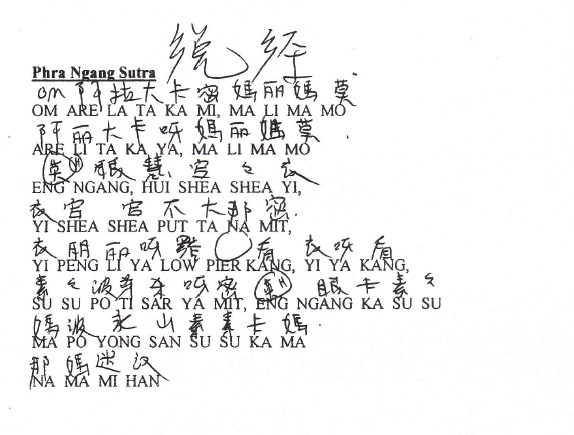 Phra Ngang Sutra 经
OM 阿拉大卡密媽丽媽莫
OM ARE LA TA KA MI, MA LI MA MO
阿丽大卡呀媽丽媽莫.
ARE LI TA KA YA, MA LI MA MO
英眼慧宫々衣
ENG NGANG, HUI SHEA SHEA YI,
衣宫 宫不大那密.
YI SHEA SHEA PUT TA NA MIT,
衣朋丽呀 看 衣呀看
YI PENG LI YA LOW PIER KANG, YI YA KANG,
素々波 呀密 英 眼卡素々
SU SU PO TI SAR YA MIT, ENG NGANG KA SU SU
媽波永山素素卡媽.
MA PO YONG SAN SU SU KA MA
那媽迷汉
NA MA MI HAN